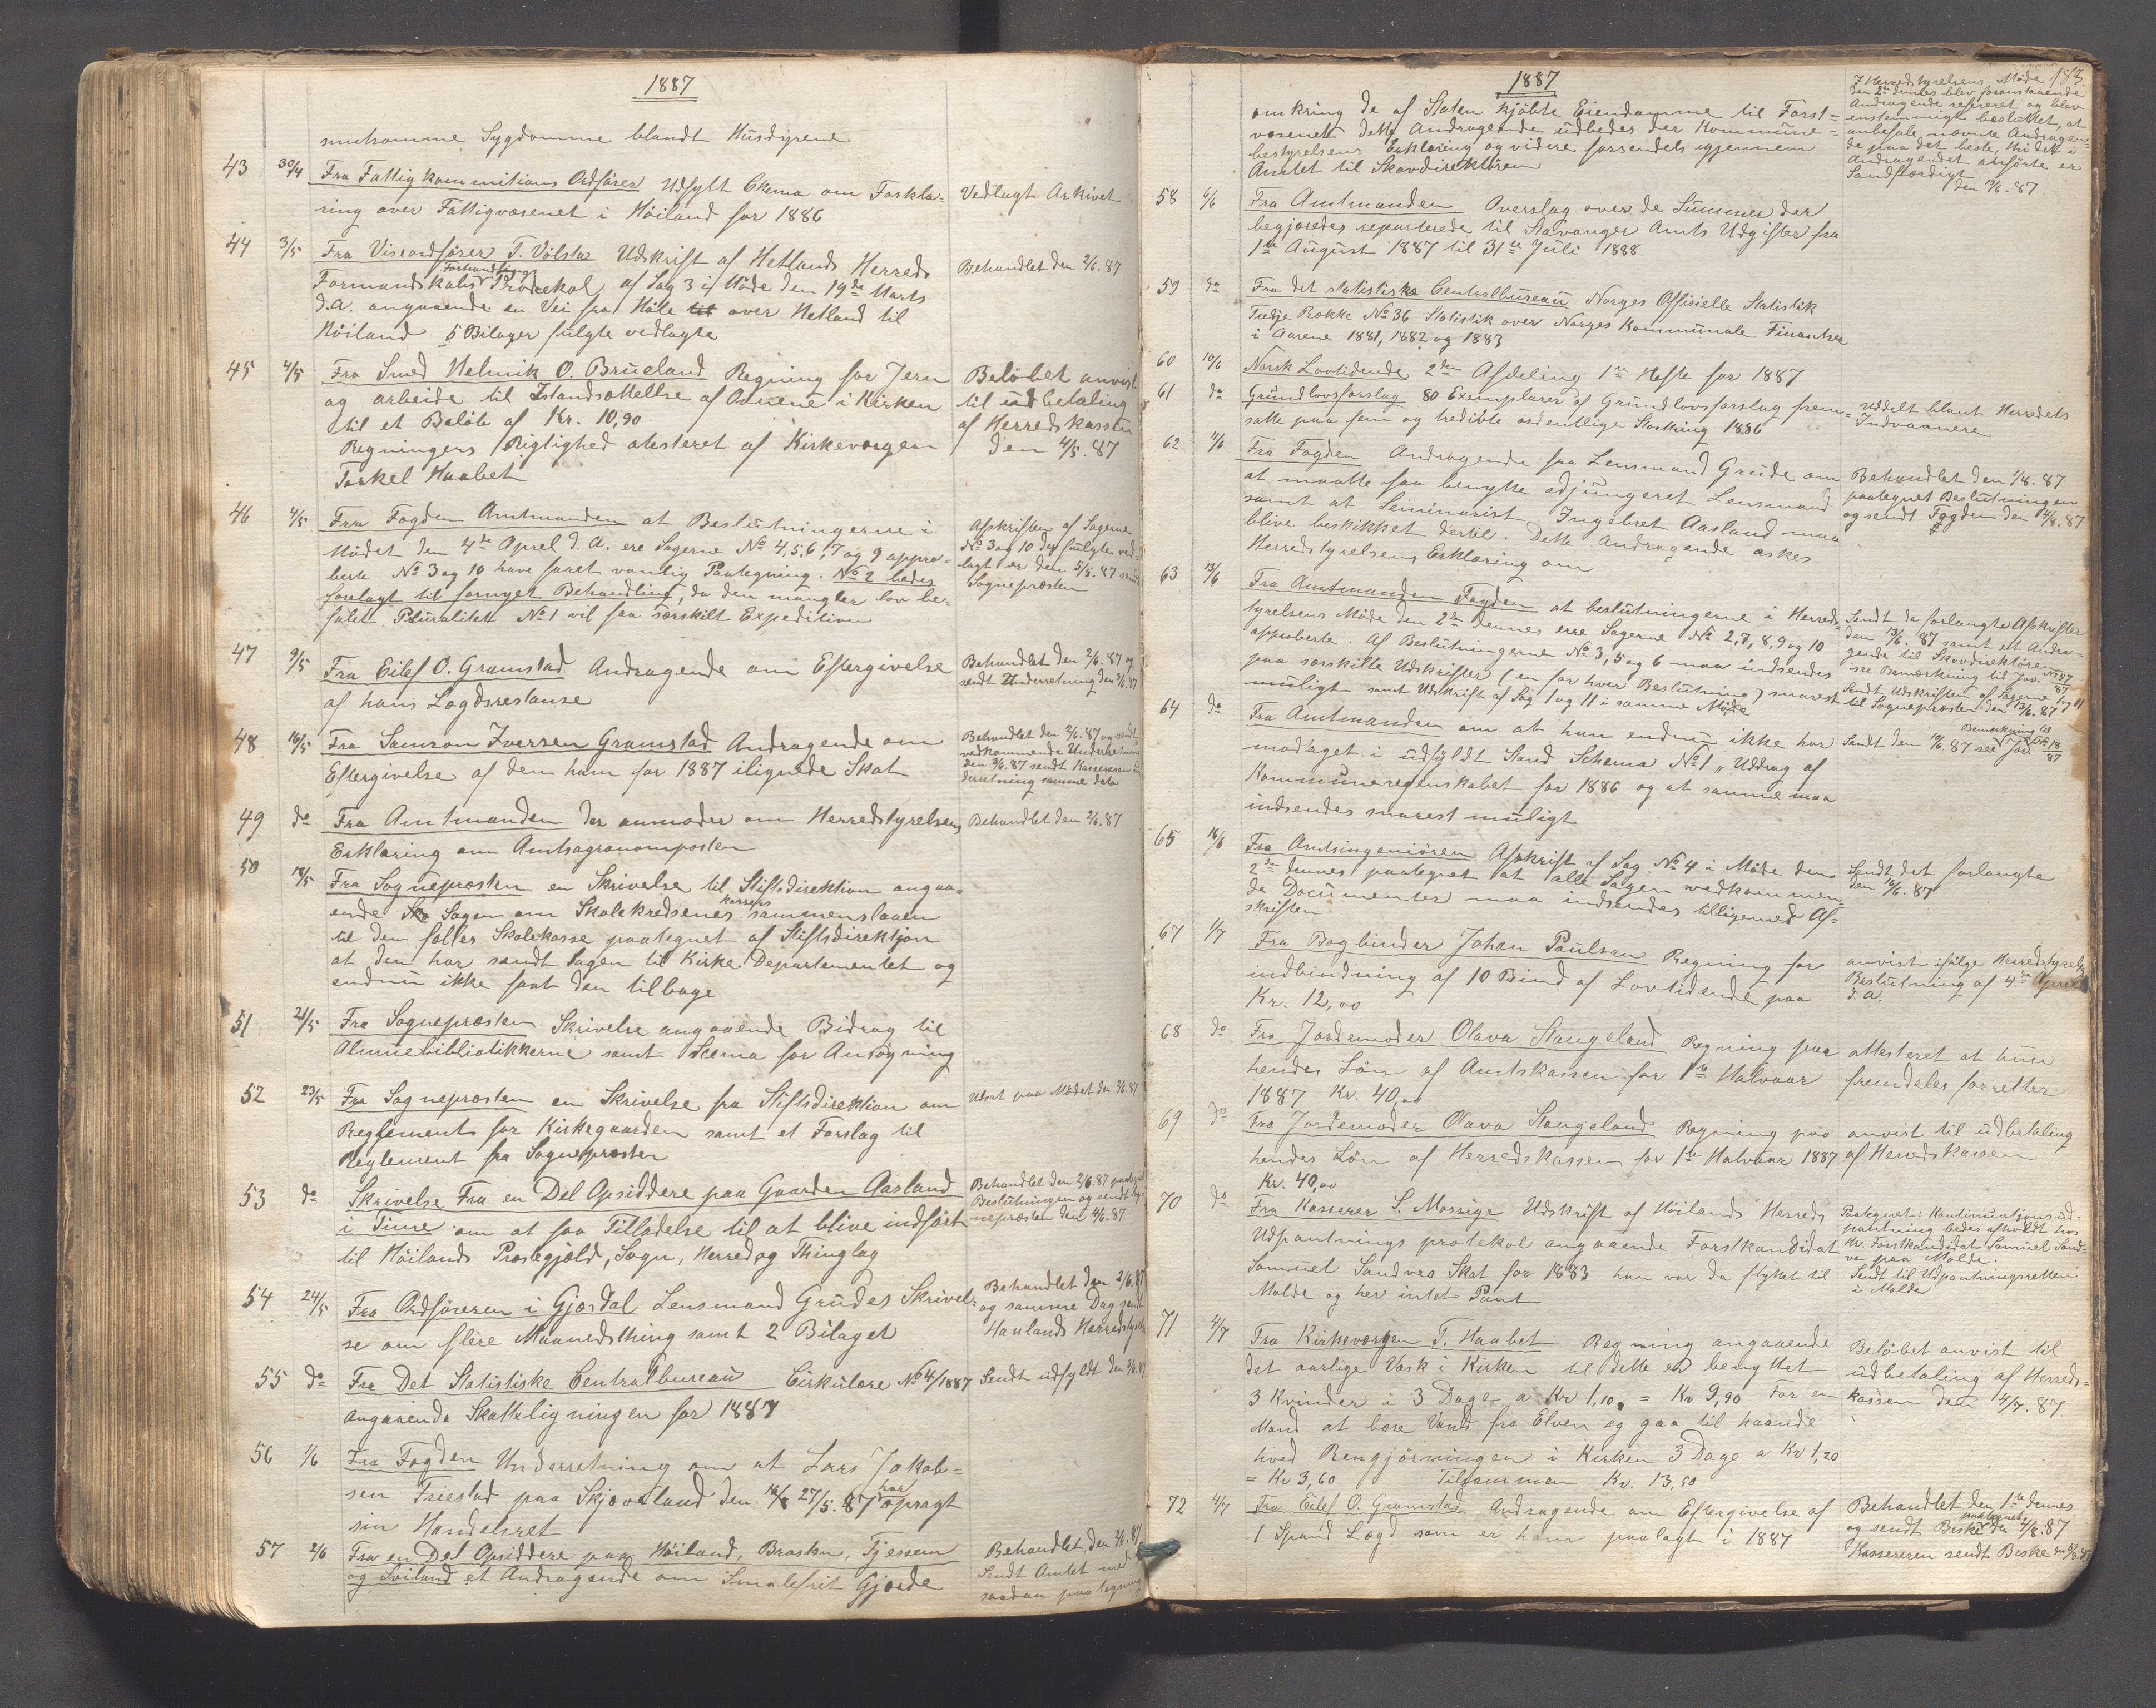 1887
smitsomme Sygdomme blandt Husdyrene
43 30/4 Fra Fattigkommitions Ordfører Udfylt Skema om Forkla-
ring over Fattigvæsenet i Höiland for 1886
Vedlagt Arkivet
44 3/5 Fra Viseordfører T. Vølstø Udskrift af Hetlands Herreds
Formandskabs Forhandlings Protekol af Sag 3 i Møde den 19de Marts
d.A. angaaende en Vei fra Hole til over Hetland til
Höiland 5 Bilager fulgte vedlagte
Behandlet den 2/6.87
45 4/5 Fra Smed Helmik O. Brueland Regning for Jern
og arbeide til Istandsættelse af Ovnene i Kirken
til et Beløb af Kr. 10,90
Regningens Rigtighed atesteret af Kirkeværgen
Torkel Haabet
Beløbet anvist
til udbetaling
af Herredskassen
den 4/5.87
46 4/5 Fra Fogden Amtmanden at Beslutningerne i
Mødet den 4de Aprel d.A. ere Sagerne No 4,5,6,7 og 9 appro-
berte No 3 og 10 have faaet vanlig Paategning. No 2 bedes
forelagt til fornyet Behandling, da den mangler lov be-
falet Pluralitet No 1 vil faa særskilt Expedition
Afskriften af Sagerne
No 3 og 10 der fulgte ved-
lagt er den 5/5.87 sendt
Sognepræsten
47 9/5 Fra Eilef O. Gramstad Andragende om Eftergivelse
af hans Lægdsrestanse
Behandlet den 2/6.87 og
sendt Underretning den 3/6.87
48 16/5 Fra Samson Iversen Gramstad Andragende om
Eftergivelse af dem ham for 1887 ilignede Skat
Behandlet den 2/6.87 og sendt
vedkommende Underretning
den 3/6.87 sendt Kassereren un-
derretning samme dato
49 do Fra Amtmanden der anmoder om Herredstyrelsens
Erklæring om Amtsagronomposten
Behandlet den 2/6.87
50 18/5 Fra Sognepræsten en Skrivelse til Stiftsdirektion angaa-
ende Sko Sagen om Skolekredsenes kassers sammenslaaen
til den fælles Skolekasse paategnet af Stiftsdirektjon
at den har sendt Sagen til Kirke Departementet og
endnu ikke faat den tilbage
51 21/5 Fra Sognepræsten Skrivelse angaaende Bidrag til
Almuebibliotikkerne samt Scema for Ansøgning
52 23/5 Fra Sognepræsten en Skrivelse fra Stiftsdirektion om
Reglement for Kirkegaarden samt et Forslag til
Reglement fra Sognepræsten
Udsat paa Mødet den 2/6.87
53 do Skrivelse Fra en Del Opsiddere paa Gaarden Aasland
i Time om at faa Tilladelse til at blive indført
til Höilands Præstegjæld, Sogn, Herred og Thinglag
Behandlet den 2/6.87 paategnet
Beslutningen og sendt Sog-
nepræsten den 4/6.87
54 24/5 Fra Ordføreren i Gjæsdal Lensmand Grudes Skrivel-
se om flere Maanedsthing samt 2 Bilaget
Behandlet den 2/6.87
og samme Dag sendt
Haalands Herredstyrelse
55 do Fra Det Statistiske Centralbureau Cirkulære No 4/1887
angaaende Skatteligningen for 1887
Sendt udfyldt den 3/6.87
56 1/6 Fra Fogden Underretning om at Lars Jakob-
sen Friestad paa Skjæveland den 27/5.87 har opsagt
sin Handelsret
57 2/6 Fra en Del Opsiddere paa Höiland, Brasten, Tjessem
og Sviland et Andragende om Smalefrit Gjærde
Behandlet den 2/6.87
Sendt Amtet med
saadan paategning
1887
183.
omkring de af Staten kjøbte Eiendomme til Forst-
væsenet dette Andragende udbedes der Kommune-
bestyrelsens Erklæring og videre forsendels igjennem
Amtet til Skovdirektören
I Herredstyrelsens Møde
den 2den dennes blev foranstaaende
Andragende refereret og blev
enstemmigt besluttet, at
anbefale nævnte Andragen-
de paa det beste, thi det i
Andragendet anførte er
Sandfærdigt
den 13/6.87
58 6/6 Fra Amtmanden Overslag over de Summer der
begjæredes reparterede til Stavanger Amts Udgifter fra
1ste August 1887 til 31te Juli 1888.
59 do Fra det statistiske Centralbureau Norges Offisielle Statistik
Tredje Række No 36 Statistik over Norges Kommunale Finantser
i Aarene 1881, 1882 og 1883
60 10/6 Norsk Lovtidende 2den Afdeling 1ste Hefte for 1887
61 do Grundlovsforslag 80 Exemplarer af Grundlovsforslag frem-
satte paa fem og tredivte ordentlige Storthing 1886
Uddelt blant Herredets
Indvaanere
62 11/6 Fra Fogden Andragende fra Lensmand Grude om
at maatte faa benytte adjungeret Lensmand
samt at Seminarist Ingebret Aasland maa
blive beskikket dertil. Dette Andragende æskes
Herredstyrelsens Erklæring om
Behandlet den 1/8.87
paategnet Beslutningen
og sendt Fogden den 4/8.87
63 13/6 Fra Amtmanden Fogden at beslutningerne i Herreds-
tyrelsens Møde den 2den dennes erre Sagerne No 2,7,8,9 og 10
approberte. Af Beslutningerne No 3,5 og 6 maa indsendes
paa særskilte Udskrifter (en for hver Beslutning) snarest
muligt samt Udskrift af Sag 1 og 11 i samme Møde
Sendt de forlangte Afskrifter
den 13/6.87 samt et Andra-
gende til Skovdirektören
see Bemærkning til Jor. No 57/87
Sendt Udskriften af Sagerne 1 og 11
til Sognepræsten den 13/6.87
64 do Fra Amtmanden om at han endnu ikke har
modtaget i udfyldt Stand Schema No 1 „Uddrag af
Kommuneregenskabet for 1886 og at samme maa
indsendes snarest muligt
Sendt den 14/6.87 see Bemerkning til Jor No 18/87
65 16/6 Fra Amtsingeniören Afskrift af Sag No 4 i Møde den
2den dennes paategnet at alle Sagen vedkommen-
de Documenter maa indsendes tilligemed Af-
skriften
Sendt det forlangte
den 16/6.87
67 1/7 Fra Bogbinder Johan Paulsen Regning for
indbindning af 10 Bind af Lovtidende paa
Kr. 12,00
anvist ifølge Herredstyrels
Beslutning af 4de Aprel
d.A.
68 do Fra Jordemoder Olava Stangeland Regning paa
hendes Løn af Amtskassen for 1ste Halvaar
1887 Kr. 40,00
attesteret at hun
fremdeles forretter
69 do Fra Jordemoder Olava Stangeland Regning paa
hendes Løn af Herredskassen for 1ste Halvaar 1887
Kr. 40,00
anvist til udbetaling
af Herredskassen
70 do Fra Kasserer S. Mossige Udskrift af Höilands Herreds
Udpantnings protekol angaaende Forstkandidat
Samuel Sandves Skat for 1883 han var da flyttet til
Molde og her intet Pant
Paategnet: Kontinuationsud-
pantning bedes afholdt hos
Hr. Forstkandidat Samuel Sand-
ve paa Molde.
Sendt til Udpantningsretten
i Molde
71 4/7 Fra Kirkeværgen T. Haabet Regning angaaende
det aarlige Vask i Kirken til dette er benyttet
3 Kvinder i 3 Dage a Kr 1,10. = Kr 9,90 For en
Mand at bære Vand fra Elven og gaa til haande
hved Rengjøringen i Kirken 3 Dage a Kr 1,20
= Kr 3,60 Tilsammen Kr. 13,50
Beløbet anvist til
udbetaling af Herreds-
kassen den 4/7.87
72 4/7 Fra Eilef O. Gramstad Andragende om Eftergivelse af
1 Spand Lægd som er ham paalagt i 1887
Behandlet den 1ste dennes
og sendt Beske paategnet den 4/8.87
Kassereren sendt Beske den